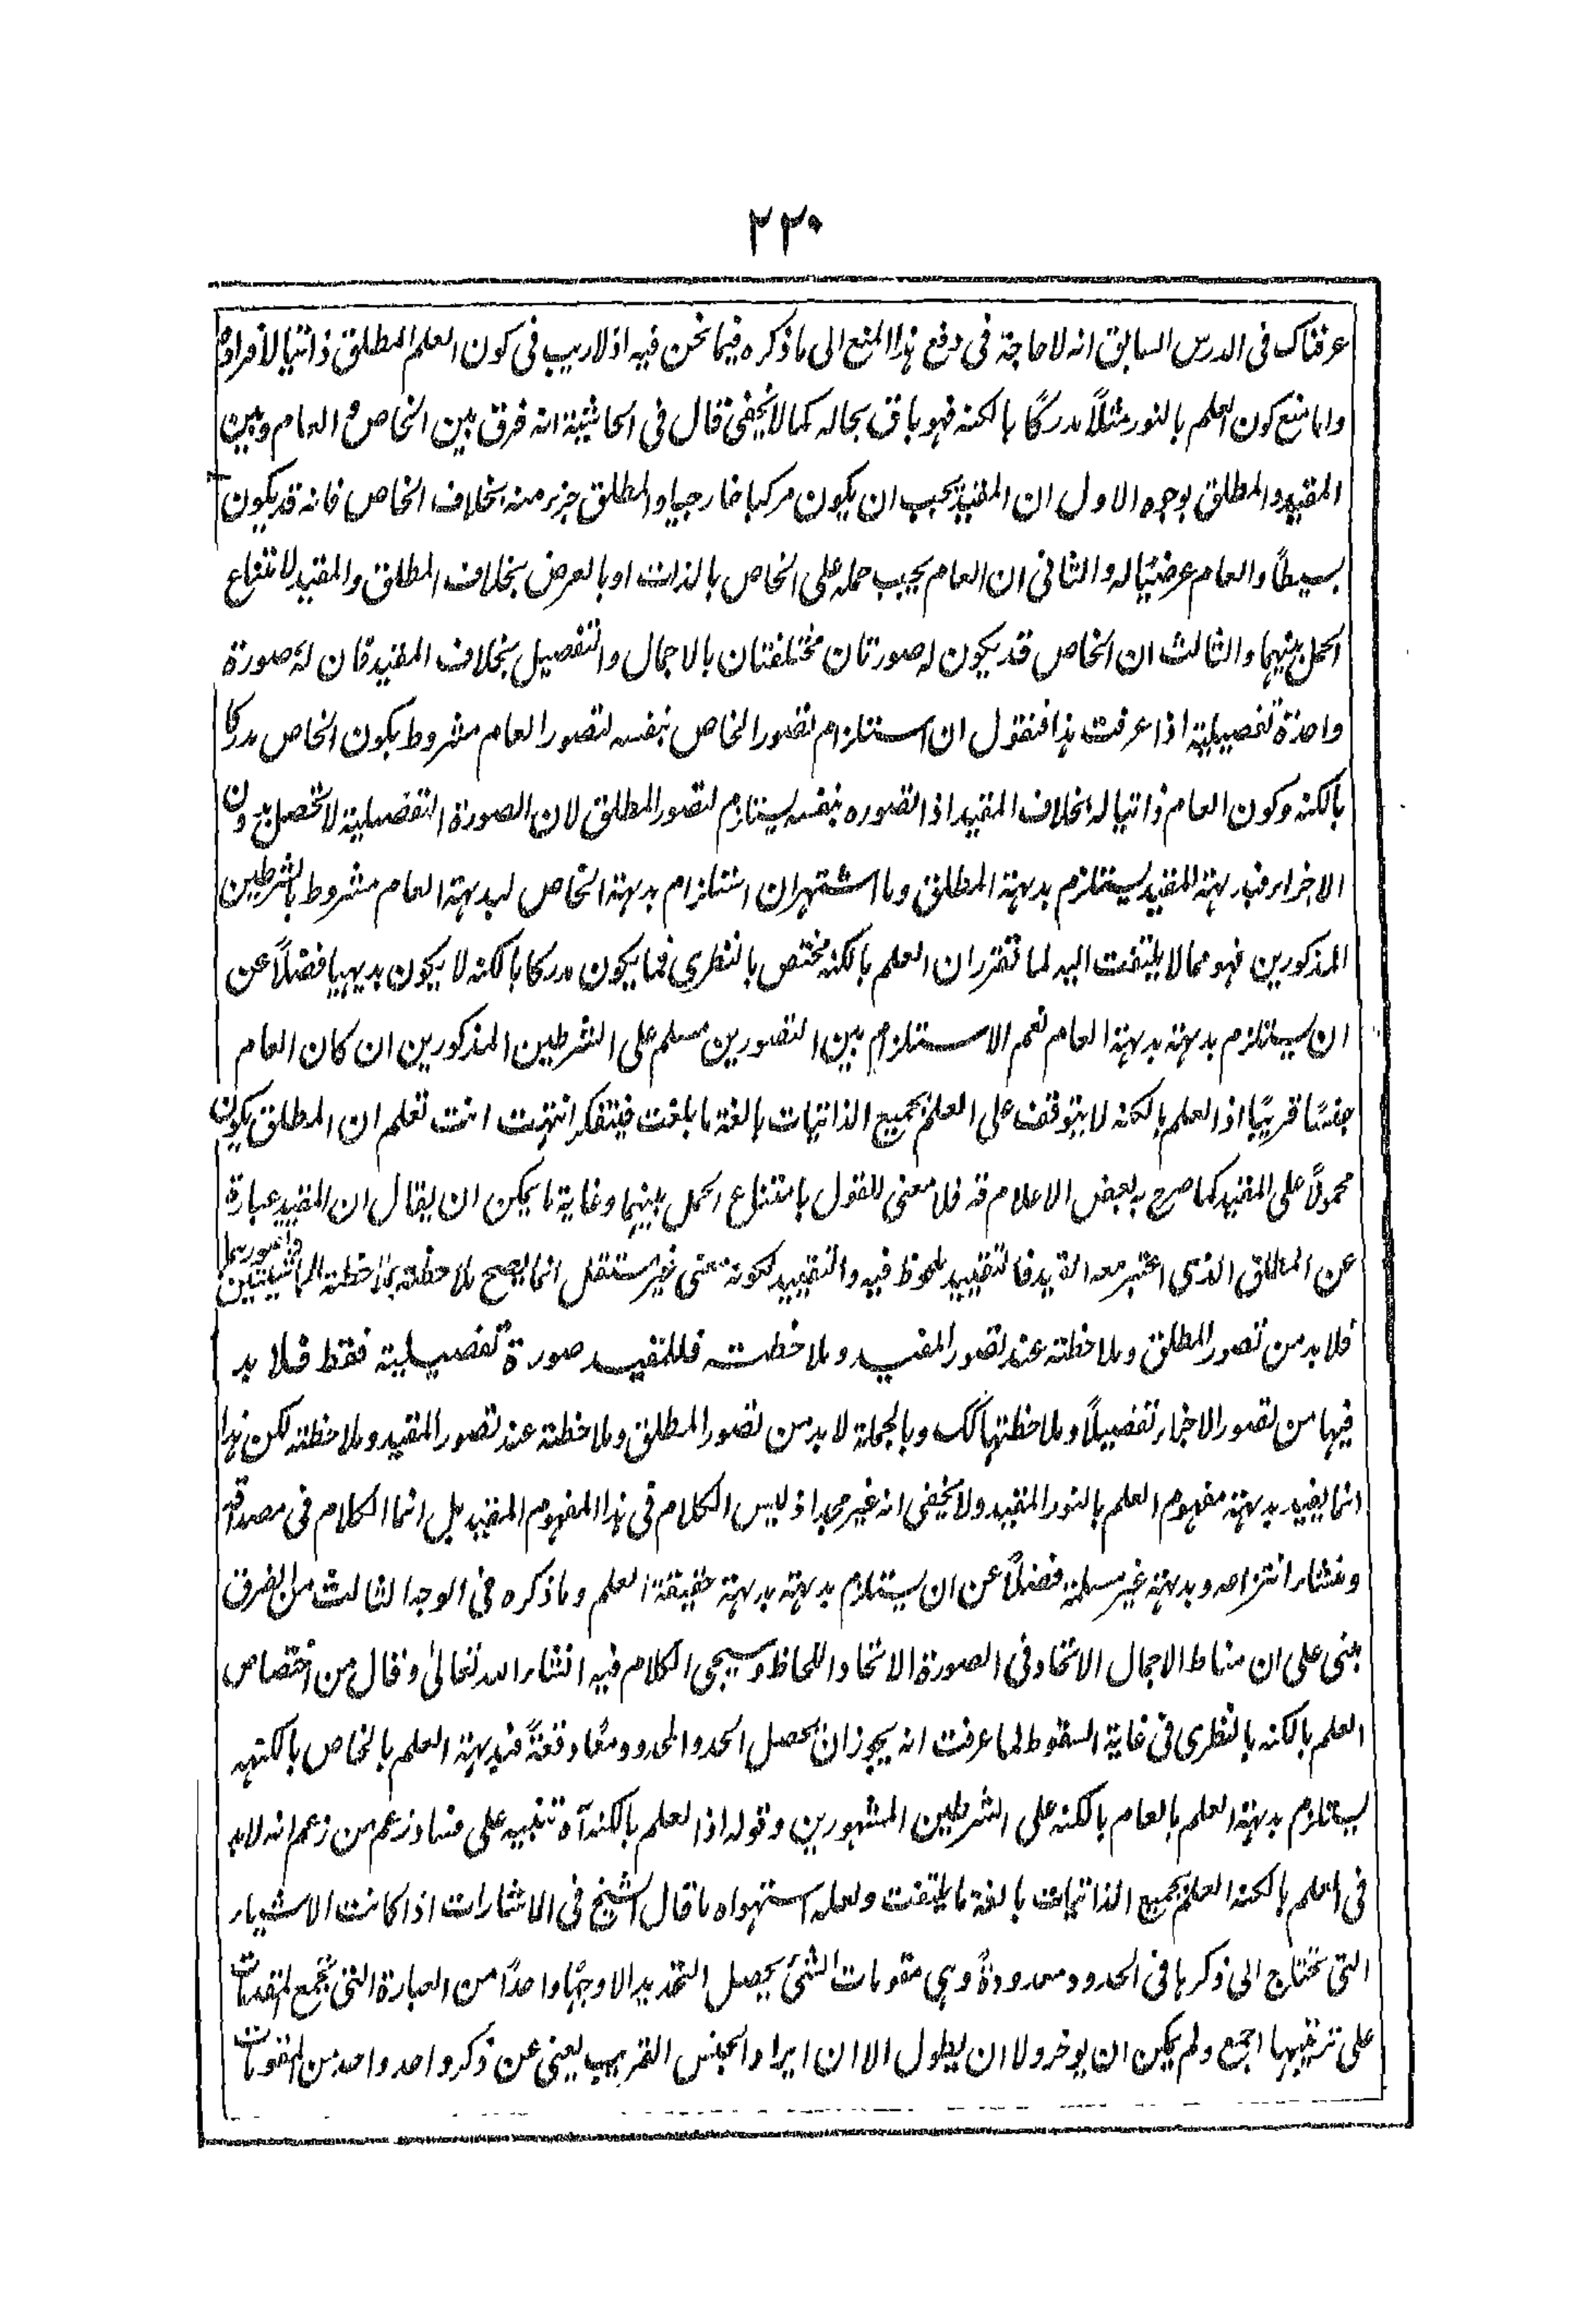 ٢٢٠
عرفناک فی الدرس السابق انه لا حاجة فی دفع هذا المنع الی ما ذکره فیما نحن فیه اذ لا ریب فی کون العلم المطلق ذاتیا لافراده
واما منع کون العلم بالنور مثلاً مدرکًا بالکنه فهو باق بحاله کما لا یخفی قال فی الحاشیة انه فرق بین الخاص و العام و بین
المقید والمطلق بوجوه الاول ان المقید یجب ان یکون مرکبا خارجیا والمطلق جزء منه بخلاف الخاص فانه قد یکون
بسیطاً والعام عرضیًا له والثانی ان العام یجب حمله علی الخاص بالذات او بالعرض بخلاف المطلق والمقید لامتناع
الحمل بینهما والثالث ان الخاص قد یکون له صورتان مختلفتان بالاجمال والتفصیل بخلاف المقید فان له صورة
واحدة تفصیلیة اذا عرفت هذا فنقول ان استلزام تصور الخاص بنفسه لتصور العام مشروط بکون الخاص مدرکا
بالکنه وکون العام ذاتیا له بخلاف المقید اذ تصوره بنفسه یستلزم تصور المطلق لان الصورة التفصیلیة لا تحصل بدون
الاجزاء فبداهة المقید یستلزم بداهة المطلق وما اشتهر ان استلزام بداهة الخاص لبداهة العام مشروط بالشرطین
المذکورین فهو مما لا یلتفت الیه لما تقرر ان العلم بالکنه مختص بالنظری فما یکون مدرکا بالکنه لا یکون بدیهیا فضلاً عن
ان یستلزم بداهته بداهة العام نعم الاستلزام بین التصورین مسلم علی الشرطین المذکورین ان کان العام
جنسًا قریبًا اذ العلم بالکنه لا یتوقف علی العلم بجمیع الذاتیات بالغة ما بلغت فیتفکر انتهت انت تعلم ان المطلق یکون
محمولاً علی المقید کما صرح به بعض الاعلام قه فلا معنی للقول بامتناع الحمل بینهما وغایة ما یمکن ان یقال ان المقید عبارة
عن المطلق الذی اعتبر معه القید فالتقیید ملحوظ فیه والتقیید لکونه معنی غیر مستقل انما یصح ملاحظته بملاحظة الحاشیتین
فلا بد من تصور المطلق وملاحظته عند تصور المقید وملاحظته فللمقید صورة تفصیلیة فقط فلا بد
فیها من تصور الاجزاء تفصیلاً وملاحظتها کک وبالجملة لا بد من تصور المطلق وملاحظته عند تصور المقید وملاحظته لکن هذا
انما یفید بداهة مفهوم العلم بالنور المقید ولا یخفی انه غیر مجد اذ لیس الکلام فی هذا المفهوم المقید بل انما الکلام فی مصداقه
ومنشاء انتزاعه وبداهته غیر مسلمة فضلاً عن ان یستلزم بداهته بداهة حقیقة العلم وما ذکره فی الوجه الثالث من الفرق
مبنی علی ان مناط الاجمال الاتحاد فی الصورة لا اتحاد اللحاظ وسیجی الکلام فیه انشاء الله تعالی وقال من اختصاص
العلم بالکنه بالنظری فی غایة السقوط لما عرفت انه یجوز ان یحصل الحد والمحدود معًا دفعةً فبداهة العلم بالخاص بالکنه
یستلزم بداهة العلم بالعام بالکنه علی الشرطین المشهورین وقوله اذ العلم بالکنه آه تنبیه علی فساد زعم من زعم انه لا بد
فی العلم بالکنه العلم بجمیع الذاتیات بالغة ما بلغت ولعله استهواه ما قال الشیخ فی الاشارات اذا کانت الاشیاء
التی تحتاج الی ذکرها فی الحدود معدودةً وهی مقومات الشیٔ لم یحصل التحدید الا وجهًا واحدًا من العبارة التی تجمع المقومات
علی ترتیبها اجمع ولم یکن ان یوخر ولا ان یطول الا ان ایراد الجنس القریب یغنی عن ذکر واحد واحد من المقومات